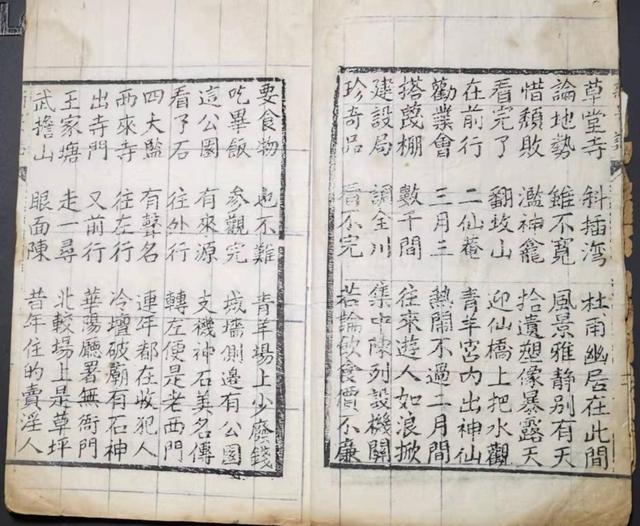 草堂寺 斜插湾 杜甫幽居在此間
論地勢 雖不寬 風景雅静別有天
惜頽敗 濫神龕 拾遺塑像暴露天
看完了 翻坟山 迎仙橋上把水觀
在前行 二仙菴 青羊宮内出神仙
勸業會 三月三 熱鬧不過二月間
搭蓆棚 數千間 往來遊人如浪掀
建設局 調全川 集中陳列設機關
珍奇品 看不完 若論飲食價不廉
要食物 也不難 青羊場上少廢錢
吃畢飯 參觀完 城墻側邊有公園
這公園 有來源 支機神石美名傳
看了石 往外行 轉左便是老西門
四大監 有聲名 連年都在收犯人
西來寺 往左行 冷壇破廟有石神
出寺門 又前行 華陽廳署無衙門
王家塘 走一尋 北較場上是草坪
武擔山 眼面陳 昔年住的賣淫人